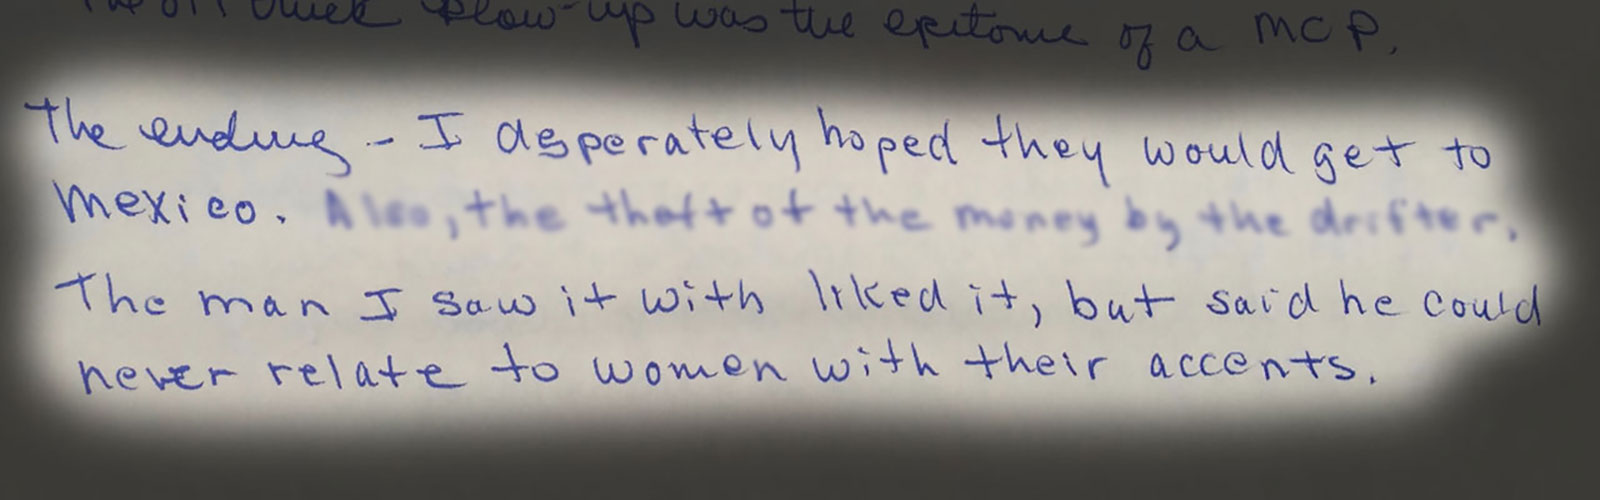 blow-up was the epitome of a MCP.
The ending - I desperately hoped they would get to
Mexico. Also, the theft of the money by the drifter.
The man I saw it with liked it, but said he could
never relate to women with their accents.